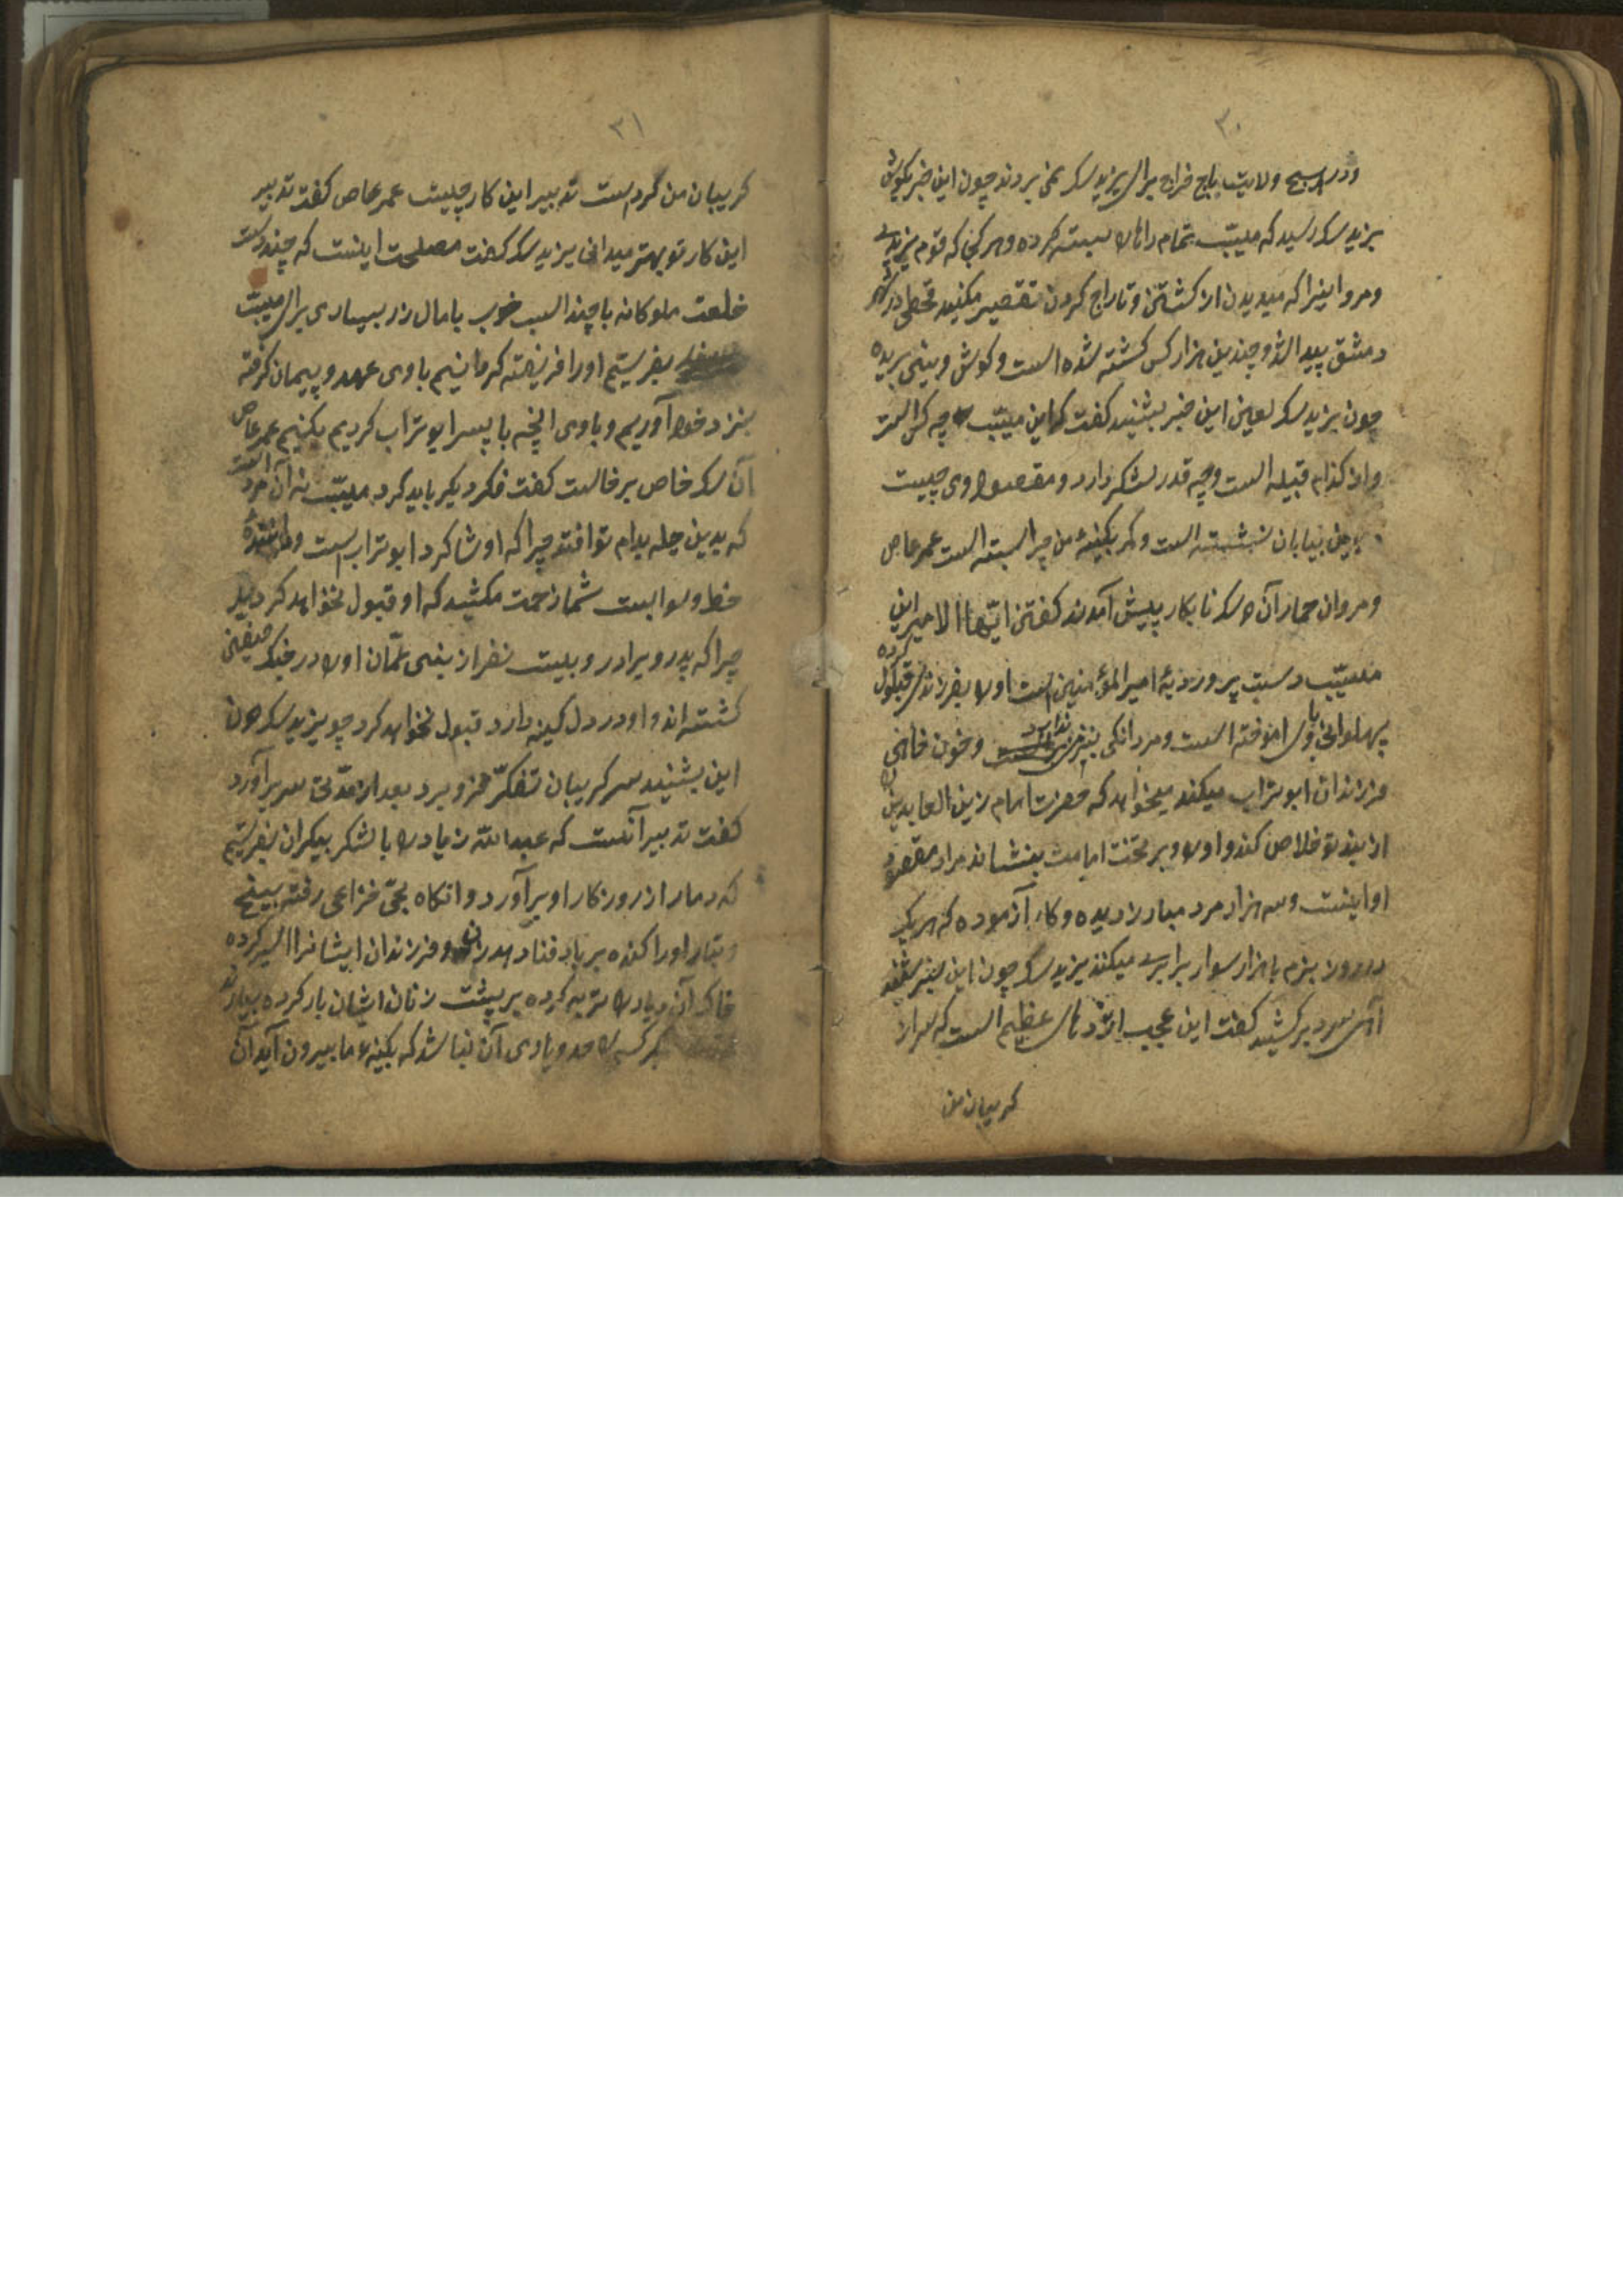 ۳۰
ودر هیچ ولایت باج خراج برای یزید سک نمی بردند چون این خبر بکوش
یزید سک رسید که مسیّب تمام راها را بسته کرده و هر کجا که قوم یزیدی
ومروانیرا که میدیدن از کشتن و تاراج کردن تقصیر مکنید قحطی در شهر
دمشق پیدا شد و چندین هزار کس کشته شده است و کوش و بینی بریده
چون یزید سک لعین این خبر بشنید کفت که این مسیّب چه کس است
واز کذام قبیله است وچه قدر لشکر دارد و مقصود وی چیست
درین بیابان نشسته است وکمر بکینهٔ من چرا بسته است عمر عاص
ومروان حمار آن سک نابکار پیش آمدند کفتن ایّها الامیر این
مسیّب دست پرورزیهٔ امیر المؤمنین است اورا بفرزندی قبول کرده
پهلوانی باوی اموخته است ومردانکی بنیزه وخون خاهی
فرزندان ابوتراب میکند میخواهد که حضرت امام زین العابدین را
از بند تو خلاص کند واورا بر تخت امامت بنشاند مراد مقصود
او اینست وسه هزار مرد مبارز دیده وکار آزموده که هر یک
در روز بزم با هزار سوار برابری میکنند یزید سک چون این خبر بشنید
آهی سرد بر کشید کفت این عجب اژدهای عظیم است که سر از
کریبان من
۳۱
کریبان من کرد است تدبیر این کار چیست عمر عاص کفت تدبیر
این کار تو بهتر میدانی یزید سک کفت مصلحت اینست که چند دست
خلعت ملوکانه با چند اسب خوب با مال زر بسیاری برای مسیّب
بفرستیم اورا فریفته کردانیم باوی عهد و پیمان کرفته
بنزد خود آوریم و باوی انچه با پسر ابوتراب کردیم بکنیم عمر عاص
آن سک خاص برخاست کفت فکر دیکر باید کرد مسیّب نه آن مرد است
که بدین حیله بدام تو افتد چرا که او شاکرد ابوتراب است
خط وسواست شما زحمت مکشید که او قبول نخواهد کرد دیکر
چرا که پدر و برادر و بیست نفر از بنی عمّان اورا در جنک صفین
کشته اند و او در دل کینه دارد قبول نخواهد کرد چو یزید سک چون
این بشنید سر کریبان تفکّر فرو برد بعد از مدّتی سر بر آورد
کفت تدبیر آنست که عبدالله زیاد را با لشکر بیکران بفرستیم
که دمار از روزکار او بر آورد وانکاه بحیّ خزاعی رفته بیخ
وتبار اورا کنده بر باد فنا دهد زن و فرزندان ایشانرا اسیر کرده
خاک آن دیار را توبره کرده بر پشت زنان ایشان بار کرده بیارند
هر کس را حد ویارای آن نباشد که بکینهء ما بیرون آید آن